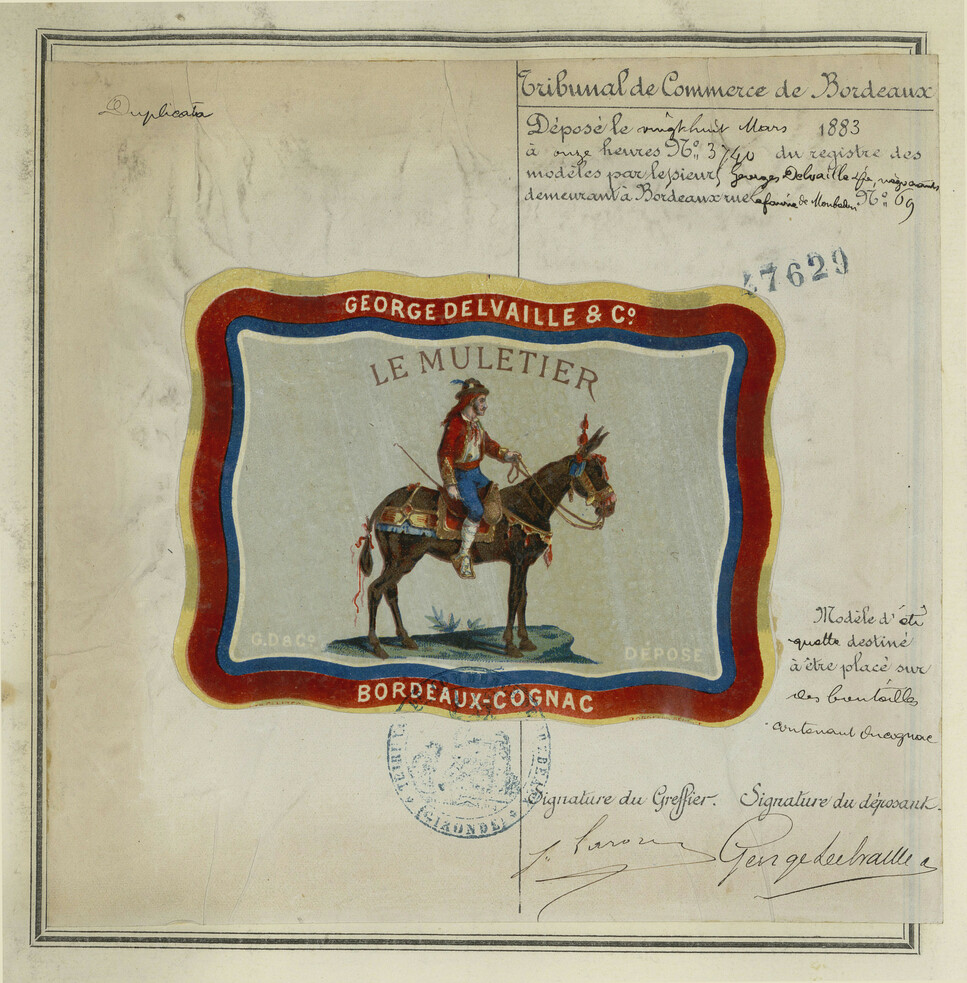 Duplicata
Tribunal de Commerce de Bordeaux
Déposé le vingt huit Mars 1883
à onze heures No: 3740 du registre des
modèles par le sieur Georges Delvaille & Cie, négociants
demeurant à Bordeaux rue Lafaurie de Monbadon No: 69
47629
GEORGE DELVAILLE & Co
LE MULETIER
G.D & Co
DÉPOSÉ
BORDEAUX-COGNAC
Modèle d'éti
quette destiné
à être placé sur
des bouteilles
contenant du cognac
(GIRONDE)
Signature du Greffier. Signature du déposant.
George Delvaille